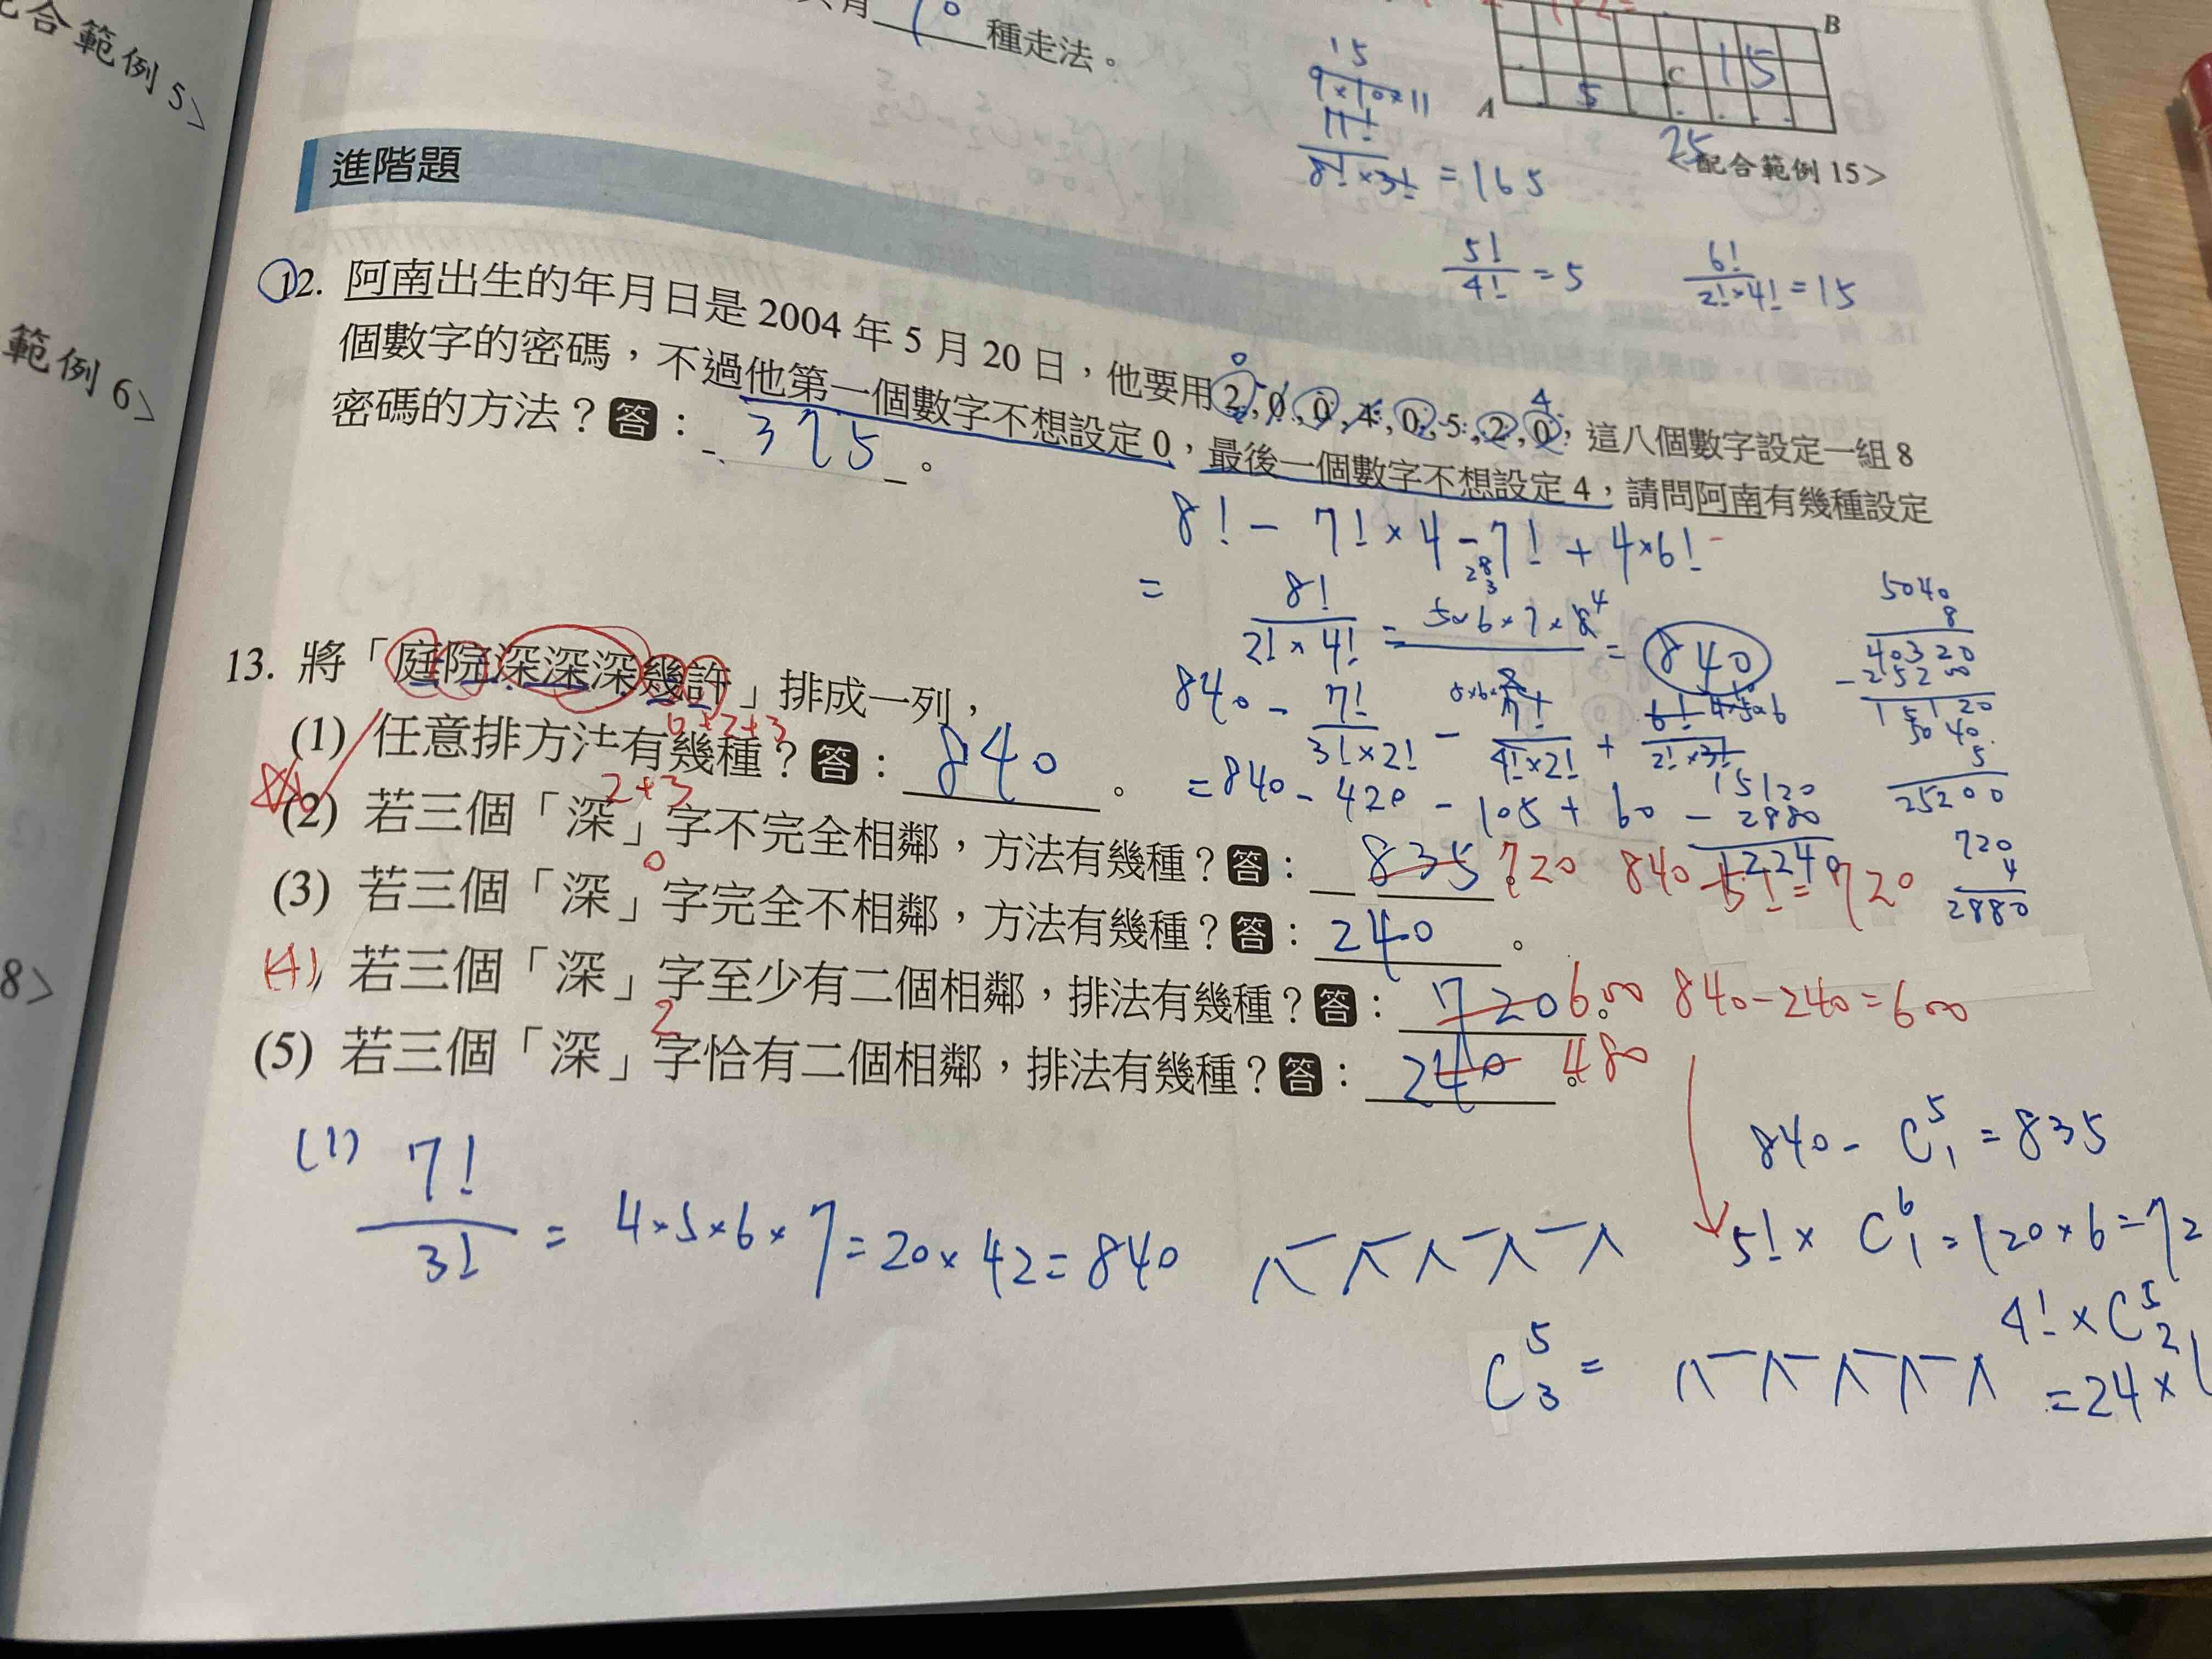 合範例 5>
範例 6>
8>
種走法。
15
9×10×11
11!
8!×3! = 165
A
B
C
5
15
25
<配合範例 15>
進階題
5!
4! = 5
6!
2!×4! = 15
12. 阿南出生的年月日是 2004 年 5 月 20 日，他要用 2, 0, 0, 4, 0, 5, 2, 0，這八個數字設定一組 8
個數字的密碼，不過他第一個數字不想設定 0，最後一個數字不想設定 4，請問阿南有幾種設定
密碼的方法？答：375。
8! - 7!×4 - 7! + 4×6!
= 8!
2!×4! = 5×6×7×8 = 840
840 - 7!
3!×2! - 7!
4!×2! + 6!
2!×3!
= 840 - 420 - 105 + 60
5040
8
40320
- 25200
15120
5040
5
25200
15120
- 2880
12240
720
4
2880
13. 將「庭院深深深幾許」排成一列，
0+2+3
(1) 任意排方法有幾種？答：840。
2+3
(2) 若三個「深」字不完全相鄰，方法有幾種？答：835 720 840 - 5! = 720
0
(3) 若三個「深」字完全不相鄰，方法有幾種？答：240。
(4) 若三個「深」字至少有二個相鄰，排法有幾種？答：720 600 840-240=600
2
(5) 若三個「深」字恰有二個相鄰，排法有幾種？答：240 480
(1) 7!
3! = 4×5×6×7 = 20×42 = 840
840 - C⁵₁ = 835
5! × C⁶₁ = 120×6 = 72
4! × C⁵₂
C⁵₃ =
= 24 ×